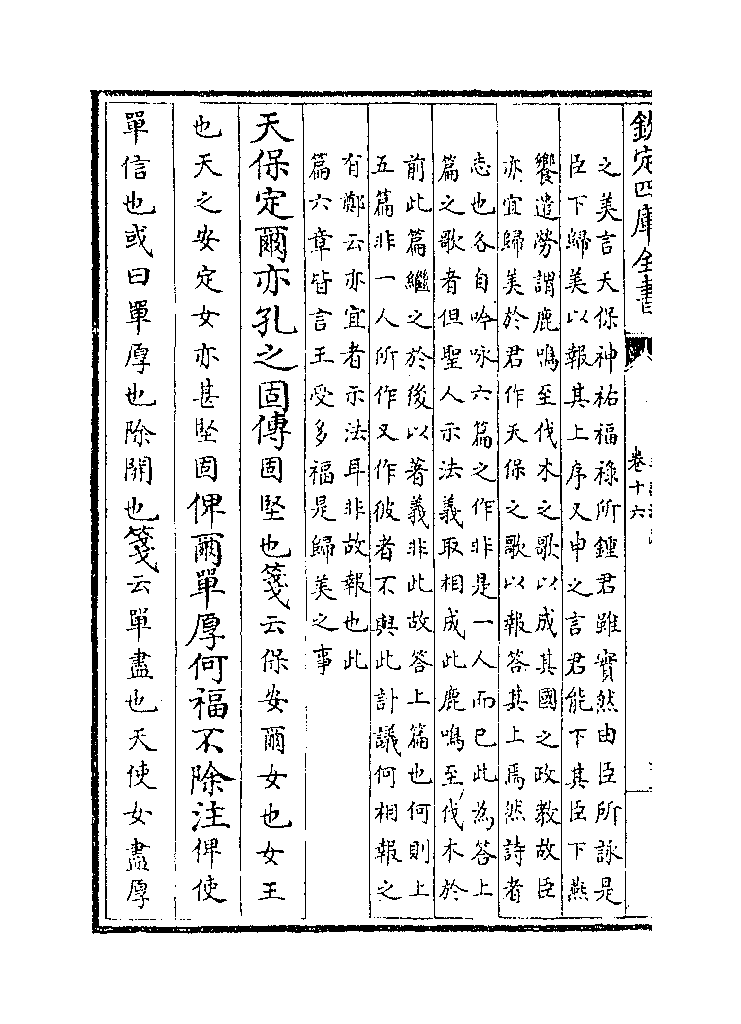 欽定四庫全書
卷十六
之美言天保神祐福祿所鍾君雖實然由臣所詠是
臣下歸美以報其上序又申之言君能下其臣下燕
饗遣勞謂鹿鳴至伐木之歌以成其國之政教故臣
亦宜歸美於君作天保之歌以報答其上焉然詩者
志也各自吟咏六篇之作非是一人而已此為答上
篇之歌者但聖人示法義取相成此鹿鳴至伐木於
前此篇繼之於後以著義非此故答上篇也何則上
五篇非一人所作又作彼者不與此計議何相報之
有鄭云亦宜者示法耳非故報也此
篇六章皆言王受多福是歸美之事
天保定爾亦孔之固傳固堅也箋云保安爾女也女王
也天之安定女亦甚堅固俾爾單厚何福不除注俾使
單信也或曰單厚也除開也箋云單盡也天使女盡厚